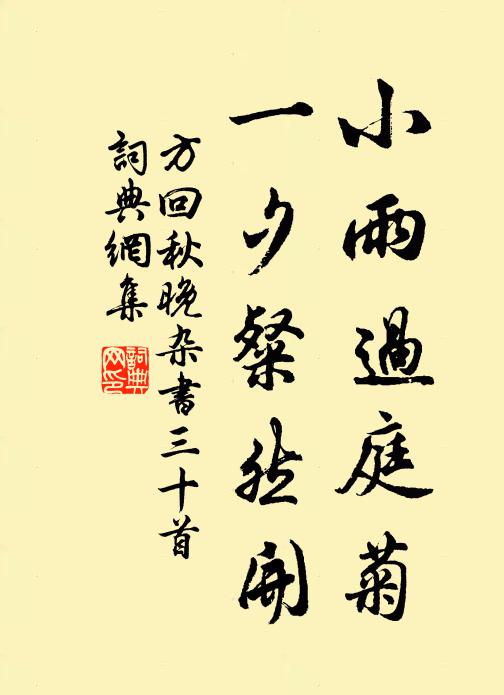 小雨過庭菊
一夕粲然開
方回秋晚杂書三十首
詞典網集
詞典網印